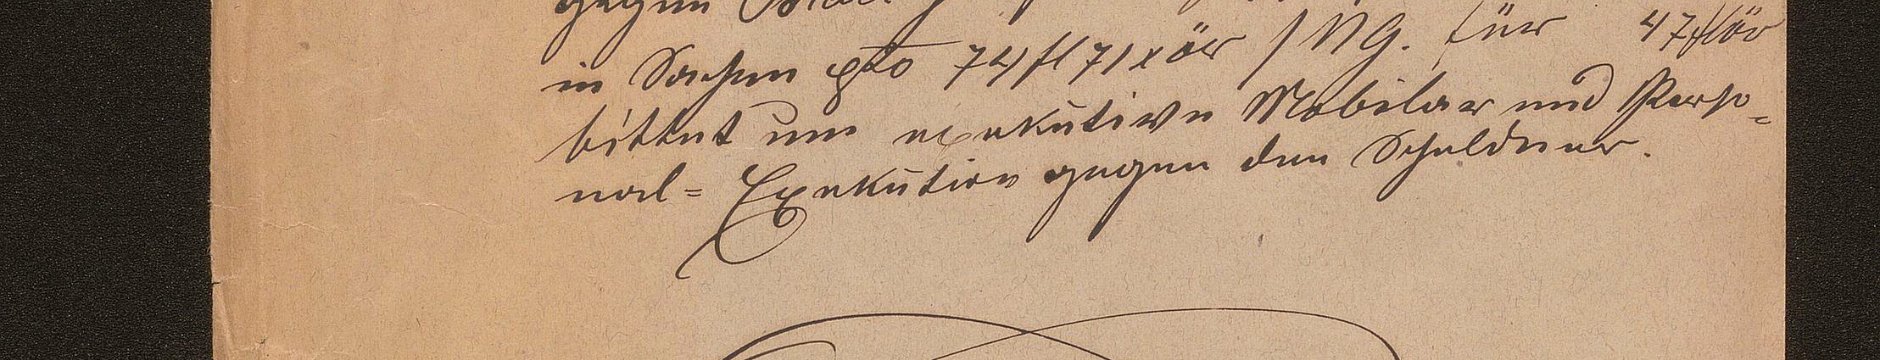 gegen
in Sachen pto 74 fl 71 x öw / NG. für 47 fl öw
bittet um exekutive Mobilar und Perso=
nal= Exekution gegen den Schuldner.